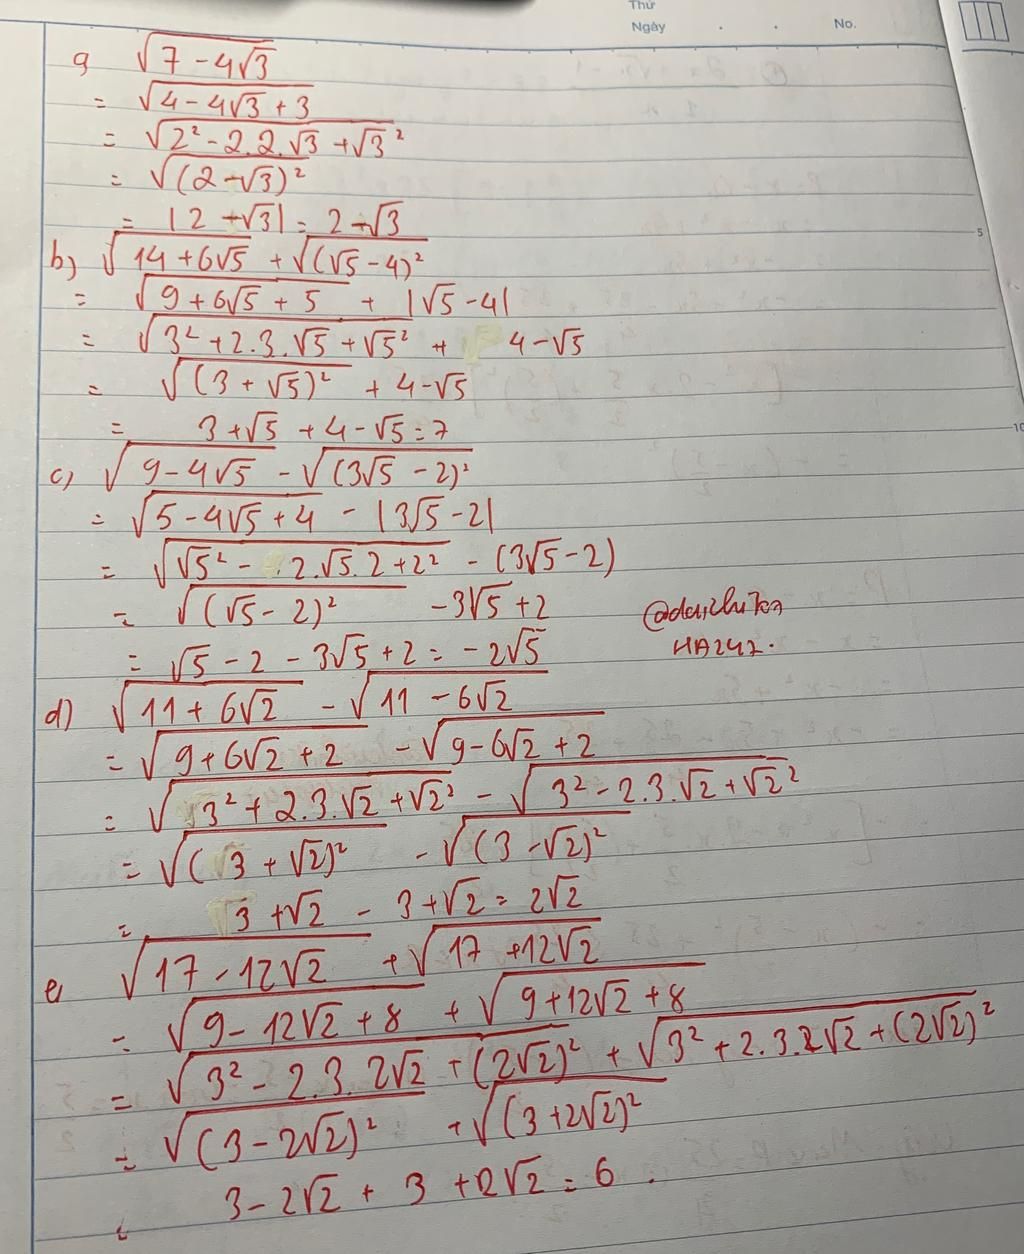 Thứ
Ngày . . No.
a √(7 - 4√3)
= √(4 - 4√3 + 3)
= √(2² - 2.2.√3 + √3²)
= √((2 - √3)²)
= |2 - √3| = 2 - √3
b) √(14 + 6√5) + √((√5 - 4)²)
= √(9 + 6√5 + 5) + |√5 - 4|
= √(3² + 2.3.√5 + √5²) + 4 - √5
= √((3 + √5)²) + 4 - √5
= 3 + √5 + 4 - √5 = 7
c) √(9 - 4√5) - √((3√5 - 2)²)
= √(5 - 4√5 + 4) - |3√5 - 2|
= √(√5² - 2.√5.2 + 2²) - (3√5 - 2)
= √((√5 - 2)²) - 3√5 + 2
= √5 - 2 - 3√5 + 2 = -2√5
d) √(11 + 6√2) - √(11 - 6√2)
= √(9 + 6√2 + 2) - √(9 - 6√2 + 2)
= √(3² + 2.3.√2 + √2²) - √(3² - 2.3.√2 + √2²)
= √((3 + √2)²) - √((3 - √2)²)
= 3 + √2 - 3 + √2 = 2√2
e √(17 - 12√2) + √(17 + 12√2)
= √(9 - 12√2 + 8) + √(9 + 12√2 + 8)
= √(3² - 2.3.2√2 + (2√2)²) + √(3² + 2.3.2√2 + (2√2)²)
= √((3 - 2√2)²) + √((3 + 2√2)²)
= 3 - 2√2 + 3 + 2√2 = 6.
5
10